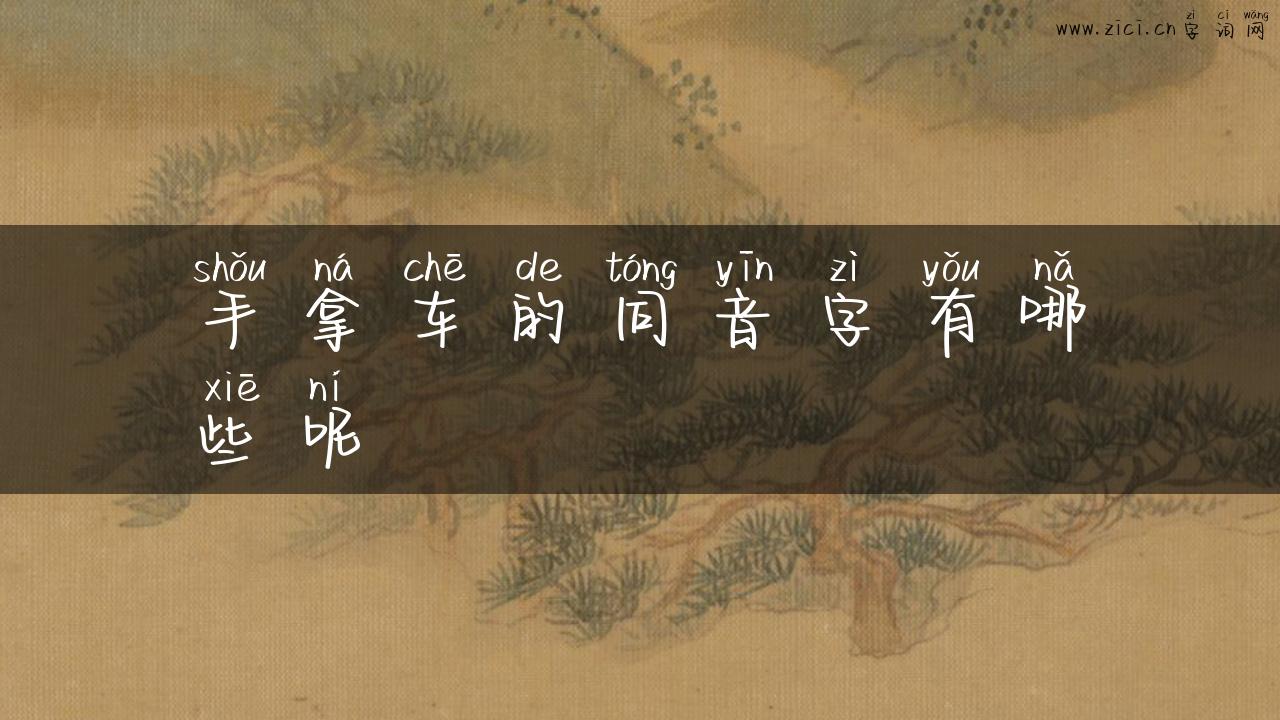 zì cí wǎng
www.zici.cn 字词网
shǒu ná chē de tóng yīn zì yǒu nǎ
手拿车的同音字有哪
xiē ní
些呢